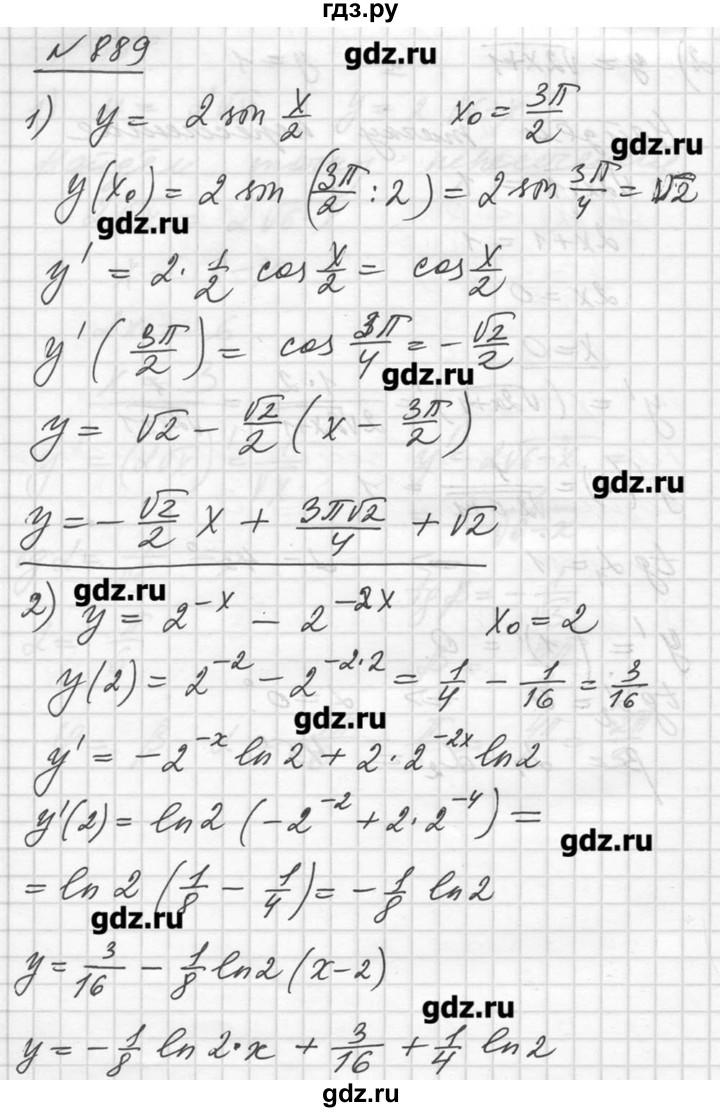 гдз.ру
№ 889
gdz.ru
1) y = 2 sin x/2    x₀ = 3π/2
gdz.ru
y(x₀) = 2 sin (3π/2 : 2) = 2 sin 3π/4 = √2
gdz.ru
y' = 2 · 1/2 cos x/2 = cos x/2
y' (3π/2) = cos 3π/4 = - √2/2
gdz.ru
y = √2 - √2/2 (x - 3π/2)
gdz.ru
y = - √2/2 x + 3π√2/4 + √2
gdz.ru
2) y = 2^(-x) - 2^(-2x)    x₀ = 2
y(2) = 2^(-2) - 2^(-2·2) = 1/4 - 1/16 = 3/16
gdz.ru
y' = -2^(-x) ln 2 + 2 · 2^(-2x) ln 2
y'(2) = ln 2 (-2^(-2) + 2 · 2^(-4)) =
gdz.ru
= ln 2 (1/8 - 1/4) = - 1/8 ln 2
gdz.ru
y = 3/16 - 1/8 ln 2 (x - 2)
gdz.ru
y = - 1/8 ln 2 · x + 3/16 + 1/4 ln 2
gdz.ru